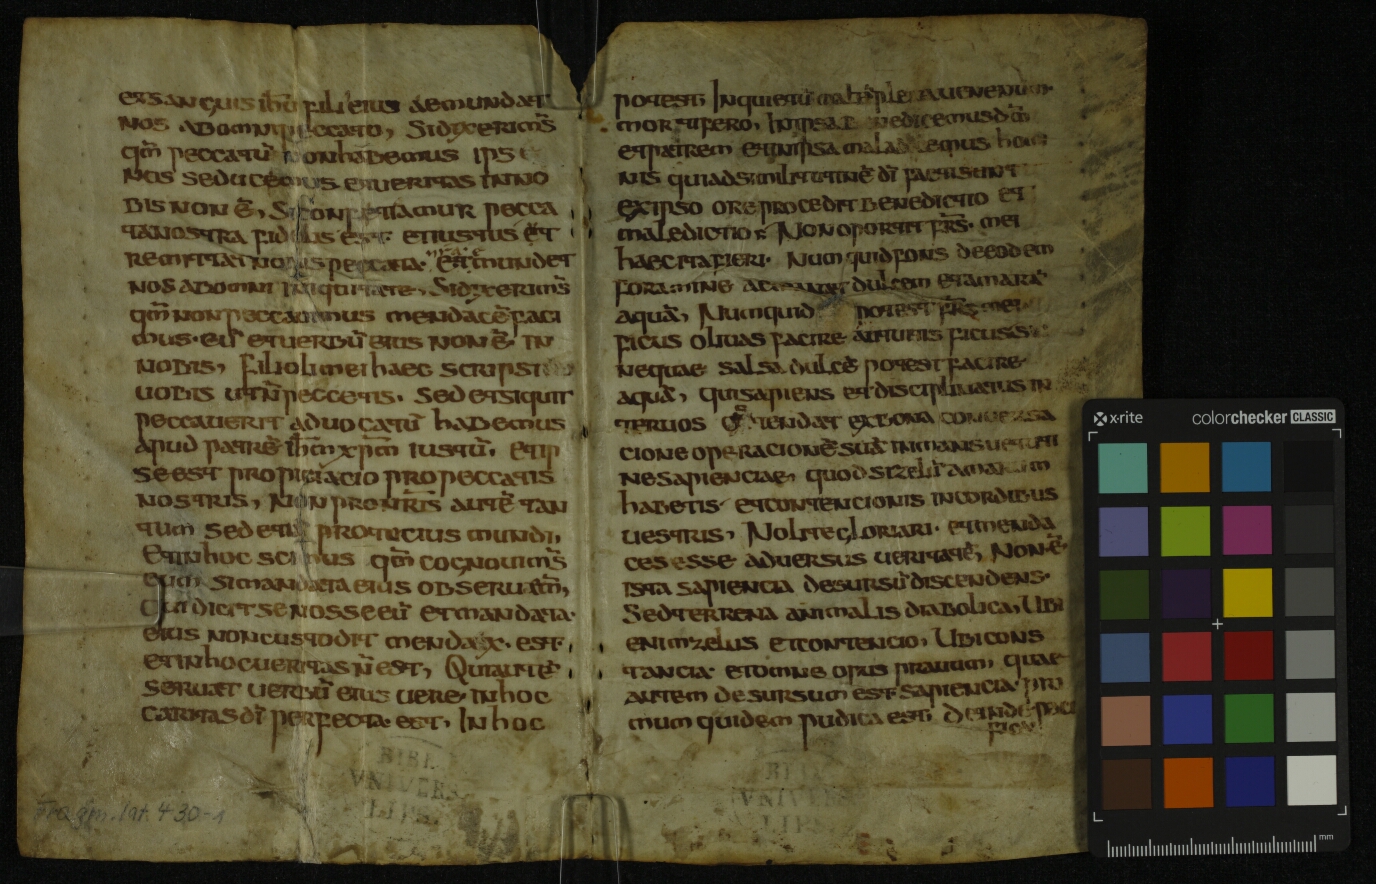 et sanguis ihū filii eius aemundat
nos ab omni peccato, Si dixerimꝰ
qm̄ peccatū non habemus ipsi
nos seducemus et ueritas in no
bis non ē, Si confetamur pecca
ta nostra fidelis est et iustus ēt
remittat nobis peccata et emundet
nos ab omni iniquitate, Si dixerimꝰ
qm̄ non peccauimus mendacē faci
mus eū et uerbū eius non ē in
nobis, filioli mei haec scripsi
uobis ut n̄ peccetis. Sed et si quit
peccauerit aduocatū habemus
apud patrē ihm̄ xpm̄ iustū. et ip
se est propiciacio pro peccatis
nostris, Non pro nr̄is autē tan
tum sed et pro totius mundi,
Et in hoc scimus qm̄ cognouimꝰ
eum si mandata eius obseruem̄,
Qui dicit se nosse eū et mandata
eius non custodit mendax est
et in hoc ueritas n̄ est, Qui autē
seruat uerbū eius uere in hoc
caritas dī perfecta est, In hoc
potest Inquietū malū plena ueneno
mortifero, In ipsa benedicemus dm̄
et patrem et in ipsa maladicemus homi
nis qui ad similitutinē dī facti sunt
ex ipso ore procedit benedictio et
maledictio Non oportit fr̄s mei
haec ita fieri Numquid fons de eodem
foramine dulcem et amarā
aquā, Numquid potest fr̄s mei
ficus oliuas facire aut uitis ficus sic
neque salsa dulcē potest facire
aquā, quis apiens et disciplinatus in
ter uos ostendat ex bona conuersa
cione operacionē suā in mansuetuti
ne sapienciae, quod si zelū amarum
habetis et contencionis in cordibus
uestris, Nolite gloriari et menda
ces esse aduersus ueritatē, Non ē
ista sapiencia desursū discendens
Sed terrena animalis diabolica, Ubi
enim zelus et contencio, Ubi cons
tancia et omne opus prauum, quae
autem desursum est sapiencia pri
mum quidem pudica est Deinde paci
fica
BIBL
VNIVERS
LIPS
BIBL
VNIVERS
LIPS
Fragm. lat. 430-1
x-rite
colorchecker CLASSIC
mm